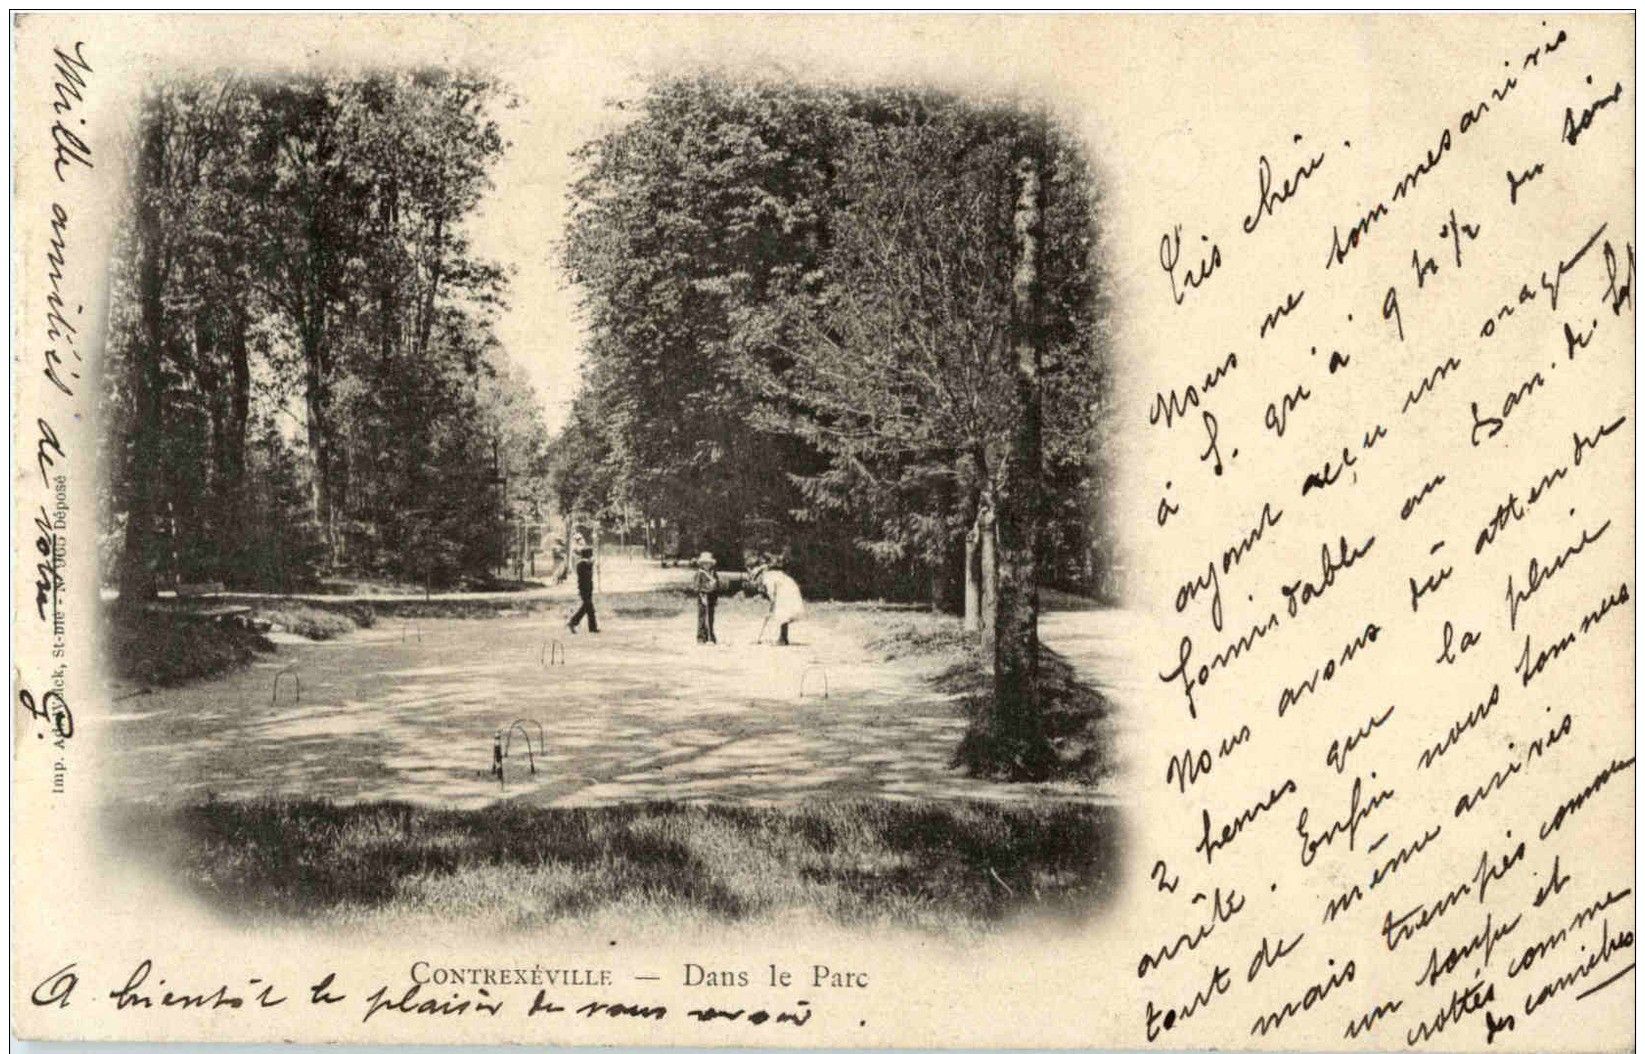 Très chéri.
Nous ne sommes arrivés
à S. qu'à 9 h 1/2 du soir
ayant reçu un orage
formidable au Ban. de. S
Nous avons dû attendre
2 heures que la pluie
arrête. Enfin nous sommes
tout de même arrivés
mais trempés comme
un soupe et
crottés comme
des caniches
Mille amitiés de votre G.
Imp. Ad. Weick, St-Dié - N° 965 Déposé
CONTREXÉVILLE — Dans le Parc
A bientôt le plaisir de vous avoir.